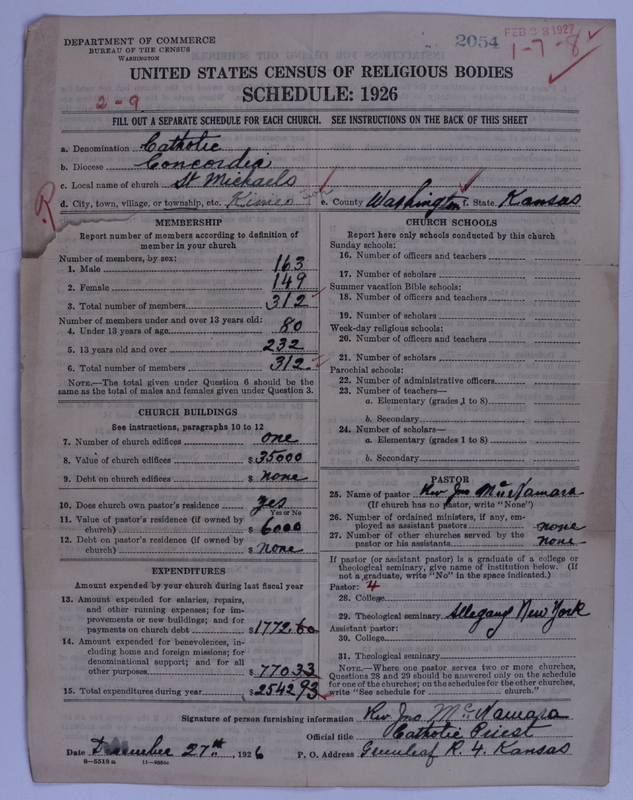 DEPARTMENT OF COMMERCE
BUREAU OF THE CENSUS
WASHINGTON
2054
FEB 23 1927
1-7-8
UNITED STATES CENSUS OF RELIGIOUS BODIES
SCHEDULE: 1926
2-9
FILL OUT A SEPARATE SCHEDULE FOR EACH CHURCH. SEE INSTRUCTIONS ON THE BACK OF THIS SHEET
a. Denomination Catholic
b. Diocese Concordia
c. Local name of church St Michaels
d. City, town, village, or township, etc. Kimeo e. County Washington f. State Kansas
R
MEMBERSHIP
Report number of members according to definition of
member in your church
Number of members, by sex:
1. Male 163
2. Female 149
3. Total number of members 312
Number of members under and over 13 years old:
4. Under 13 years of age 80
5. 13 years old and over 232
6. Total number of members 312
NOTE.—The total given under Question 6 should be the
same as the total of males and females given under Question 3.
CHURCH BUILDINGS
See instructions, paragraphs 10 to 12
7. Number of church edifices one
8. Value of church edifices $35000
9. Debt on church edifices $none
10. Does church own pastor's residence? yes
Yes or No
11. Value of pastor's residence (if owned by
church) $6000
12. Debt on pastor's residence (if owned by
church) $none
EXPENDITURES
Amount expended by your church during last fiscal year
13. Amount expended for salaries, repairs,
and other running expenses; for im-
provements or new buildings; and for
payments on church debt $1772.60
14. Amount expended for benevolences, in-
cluding home and foreign missions; for
denominational support; and for all
other purposes $770.33
15. Total expenditures during year $2542.93
CHURCH SCHOOLS
Report here only schools conducted by this church
Sunday schools:
16. Number of officers and teachers
17. Number of scholars
Summer vacation Bible schools:
18. Number of officers and teachers
19. Number of scholars
Week-day religious schools:
20. Number of officers and teachers
21. Number of scholars
Parochial schools:
22. Number of administrative officers
23. Number of teachers—
a. Elementary (grades 1 to 8)
b. Secondary
24. Number of scholars—
a. Elementary (grades 1 to 8)
b. Secondary
PASTOR
25. Name of pastor Rev Jno McNamara
(If church has no pastor, write "None")
26. Number of ordained ministers, if any, em-
ployed as assistant pastors none
27. Number of other churches served by the
pastor or his assistants none
If pastor (or assistant pastor) is a graduate of a college or
theological seminary, give name of institution below. (If
not a graduate, write "No" in the space indicated.)
Pastor: 4
28. College
29. Theological seminary Allegany New York
Assistant pastor:
30. College
31. Theological seminary
NOTE.—Where one pastor serves two or more churches,
Questions 28 and 29 should be answered only on the schedule
for one of the churches; on the schedules for the other churches,
write "See schedule for church."
Signature of person furnishing information Rev. Jno McNamara
Official title Catholic Priest
Date December 27th, 1926 P. O. Address Greenleaf R. 4. Kansas
8—5518a 11—9886c